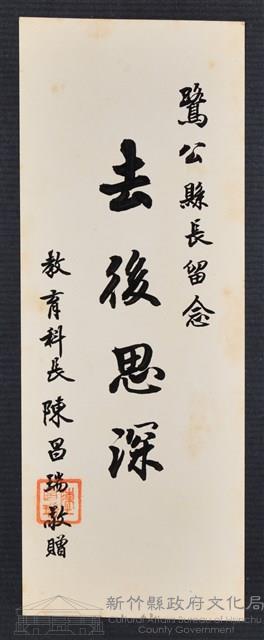 鷺公縣長留念
去後思深
教育科長陳昌瑞敬贈
新竹縣政府文化局
Cultural Affairs Bureau of Hsinchu
County Government